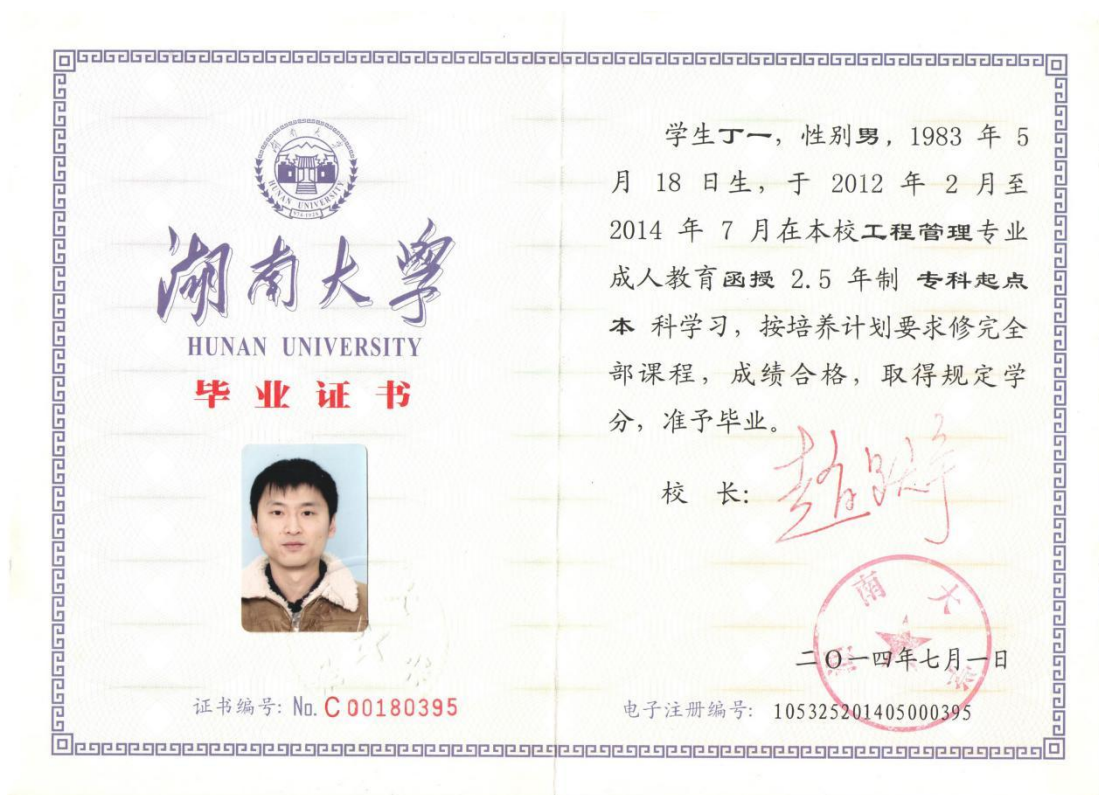 湖南大学
HUNAN UNIVERSITY
湖南大学
HUNAN UNIVERSITY
毕业证书
证书编号: No. C 00180395
学生丁一，性别男，1983 年 5
月 18 日生，于 2012 年 2 月至
2014 年 7 月在本校工程管理专业
成人教育函授 2.5 年制 专科起点
本 科学习，按培养计划要求修完全
部课程，成绩合格，取得规定学
分，准予毕业。
校 长:
湖南大学
二〇一四年七月一日
电子注册编号: 105325201405000395